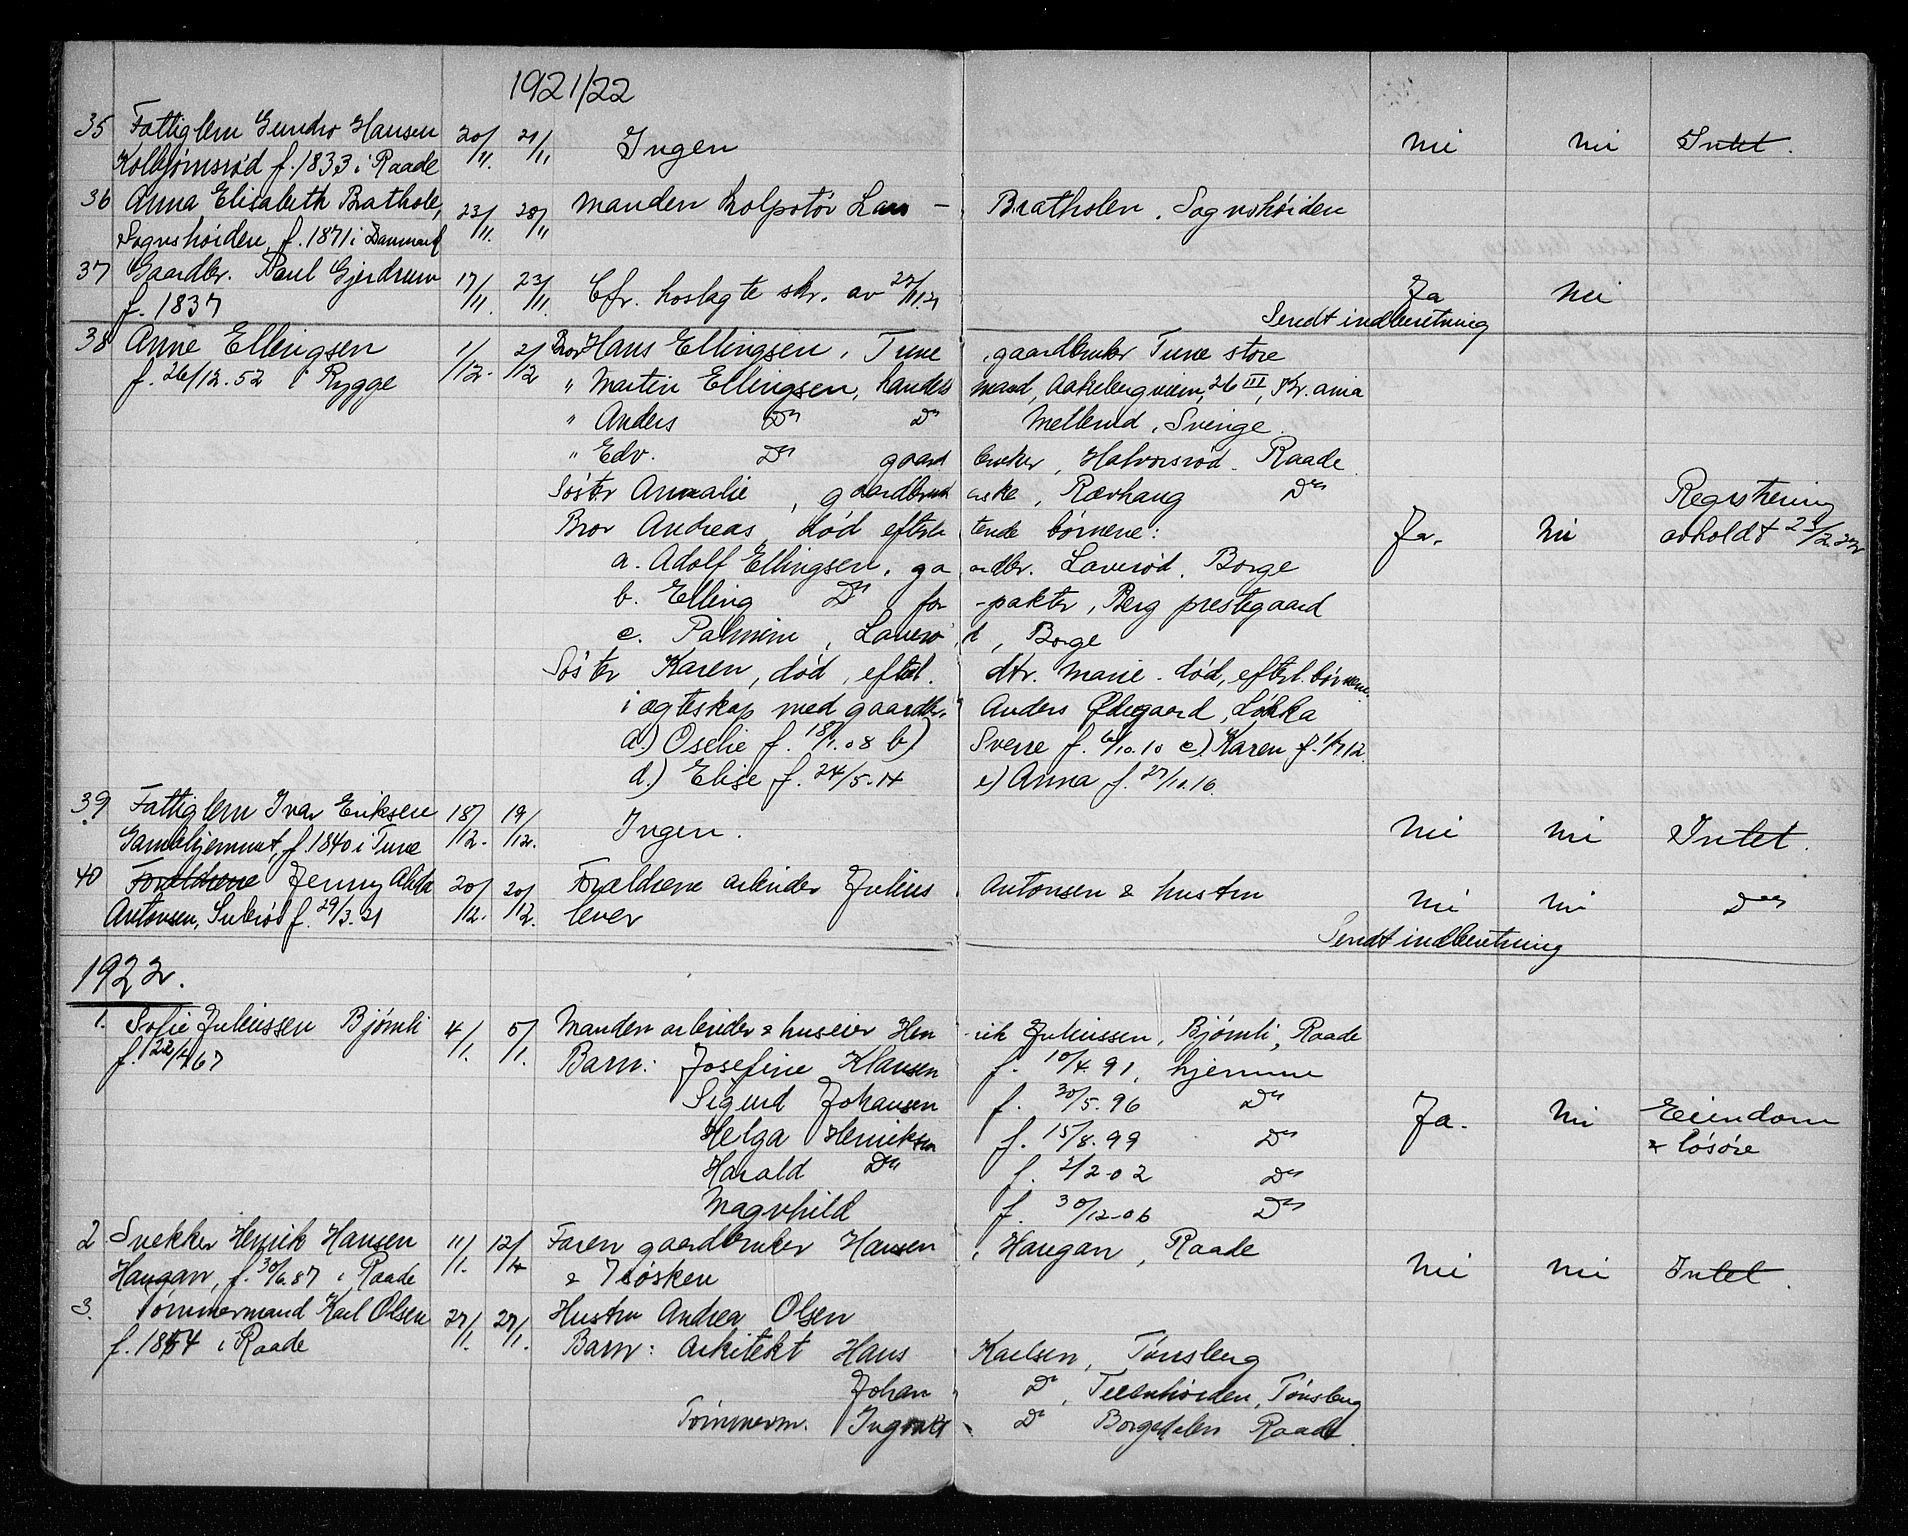 1921/22
35 Fattiglem Gundro Hansen 20/ 21/ Ingen Nei Nei Intet.
Kolbjørnsrød f. 1833 i Raade 11. 11
36 Anna Elisabeth Brathole, 23/ 28/ Manden Kolpotør Lars - Bratholen, Sognshøiden
Sognshøiden, f. 1871 i Danmark 11. 11
37 Gaardbr. Paul Gjerdrum 17/ 23/ Cfr. hoslagte skr. av Ja Nei
f. 1837 11. 11.
Sendt indberetning
38 Anne Ellingsen 1/ 2/ Bror Hans Ellingsen, Tune, gaardbruker Tune store
f. 26/12.52 i Rygge 12. 12 " Martin Ellingsen, handelsmand, Aakebergveien, 26 III, Kr.ania
" Anders Do Do Mellerud, Sverige.
" Edv. Do gaardbruker, Halvorsrød. Raade
Søster Annalie, gaardbrukerske, Rævhaug Do Registrering
Bror Andreas, død efterlatende børnene: Ja. Nei avholdt
a. Adolf Ellingsen, gaardbr. Lauvsød. Borge
b. Elling Do for-pakter, Berg prestegaard
c. Palmine, , Borge
Søster Karen, død, efterl. dtr. Marie. død, efterl. børnene
i ægteskap med gaardbr. Anders Ødegaard, Løkka
a) Oselie f. 18/1.08 b) Sverre f. 6/10.10 c) Karen f. 1/7 12
d.) Elise f. 24/5.14 e) Anna f. 27/10.16.
39 Fattiglem Ivar Eriksen 18/ 19/ Ingen. Nei Nei Intet.
Gamlehjemmet, f. 1840 i Tune 12. 12.
40 Forældrene Jenny Alida 20/ 20/ Forældrene arbeider Julius Antonsen & hustru Nei Nei Do
Antonsen, f. 29/3.21 12. 12. lever
Sendt indberetning
1922.
1. Sofie Juliussen Bjørnli 4/ 5/ Manden arbeider & huseier Henrik Juliussen, Bjørnli, Raade
f. 67 1. 1. Barn: Josefine Klausen f. 10/4.91, hjemme
Sigurd Johansen f. 30/5.96 Do Ja. Nei Eiendom
Helga Henriksen f. 15/8.99 Do & løsøre
Harald Do f. 2/2-02 Do
Magnhild f. 30/12-06 Do
2 Svekker Henrik Hansen 11/ 12/ Faren gaardbruker Hansen, Haugan, Raade Nei Nei Intet.
Haugan, f. 30/6.87 i Raade 1. & 7 søsken
3. Tømmermand Karl Olsen 27/ 27/ Hustru Andrea Olsen
f. 1854 i Raade 1. 1. Barn: Arkitekt Hans Karlsen, Tønsberg
Johan Do, , Tønsberg
Tømmerm. Ingvald Do Borgedalen Raade.